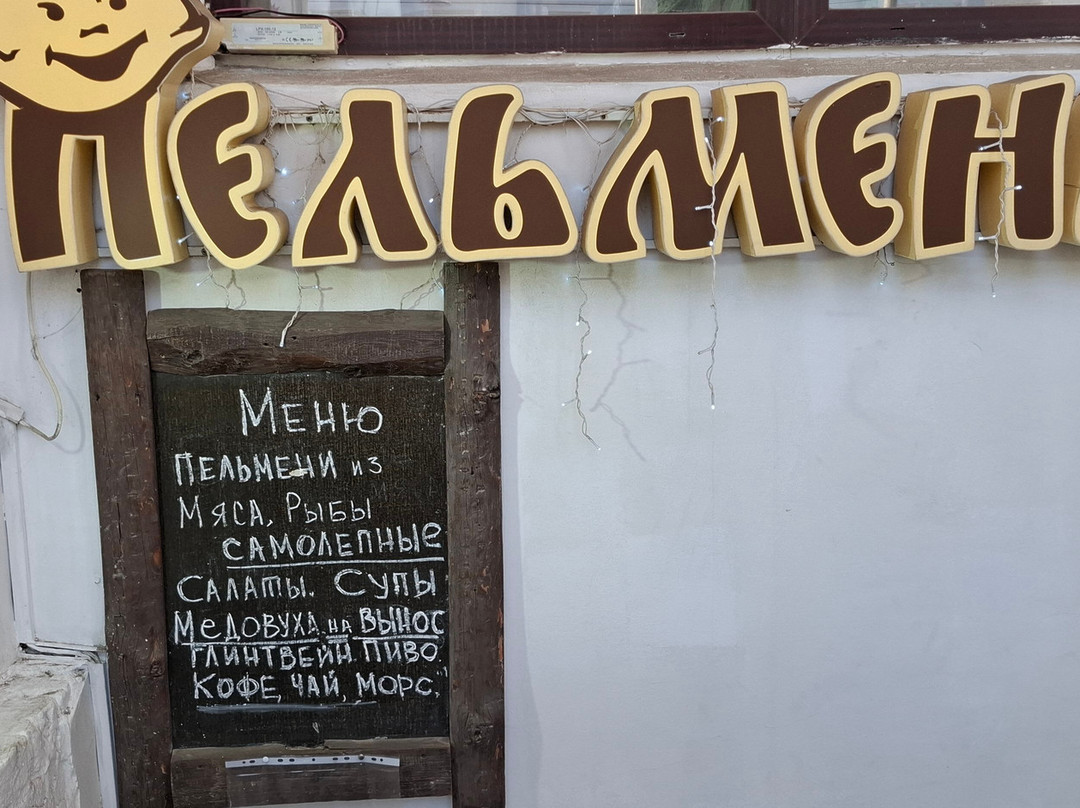 ПЕЛЬМЕН
Меню
ПЕЛЬМЕНИ из
Мяса, Рыбы
САМОЛЕПНЫЕ
САЛАТЫ. СУПЫ
МЕДОВУХА НА ВЫНОС
ГЛИНТВЕЙН. ПИВО.
КОФЕ, ЧАЙ, МОРС.